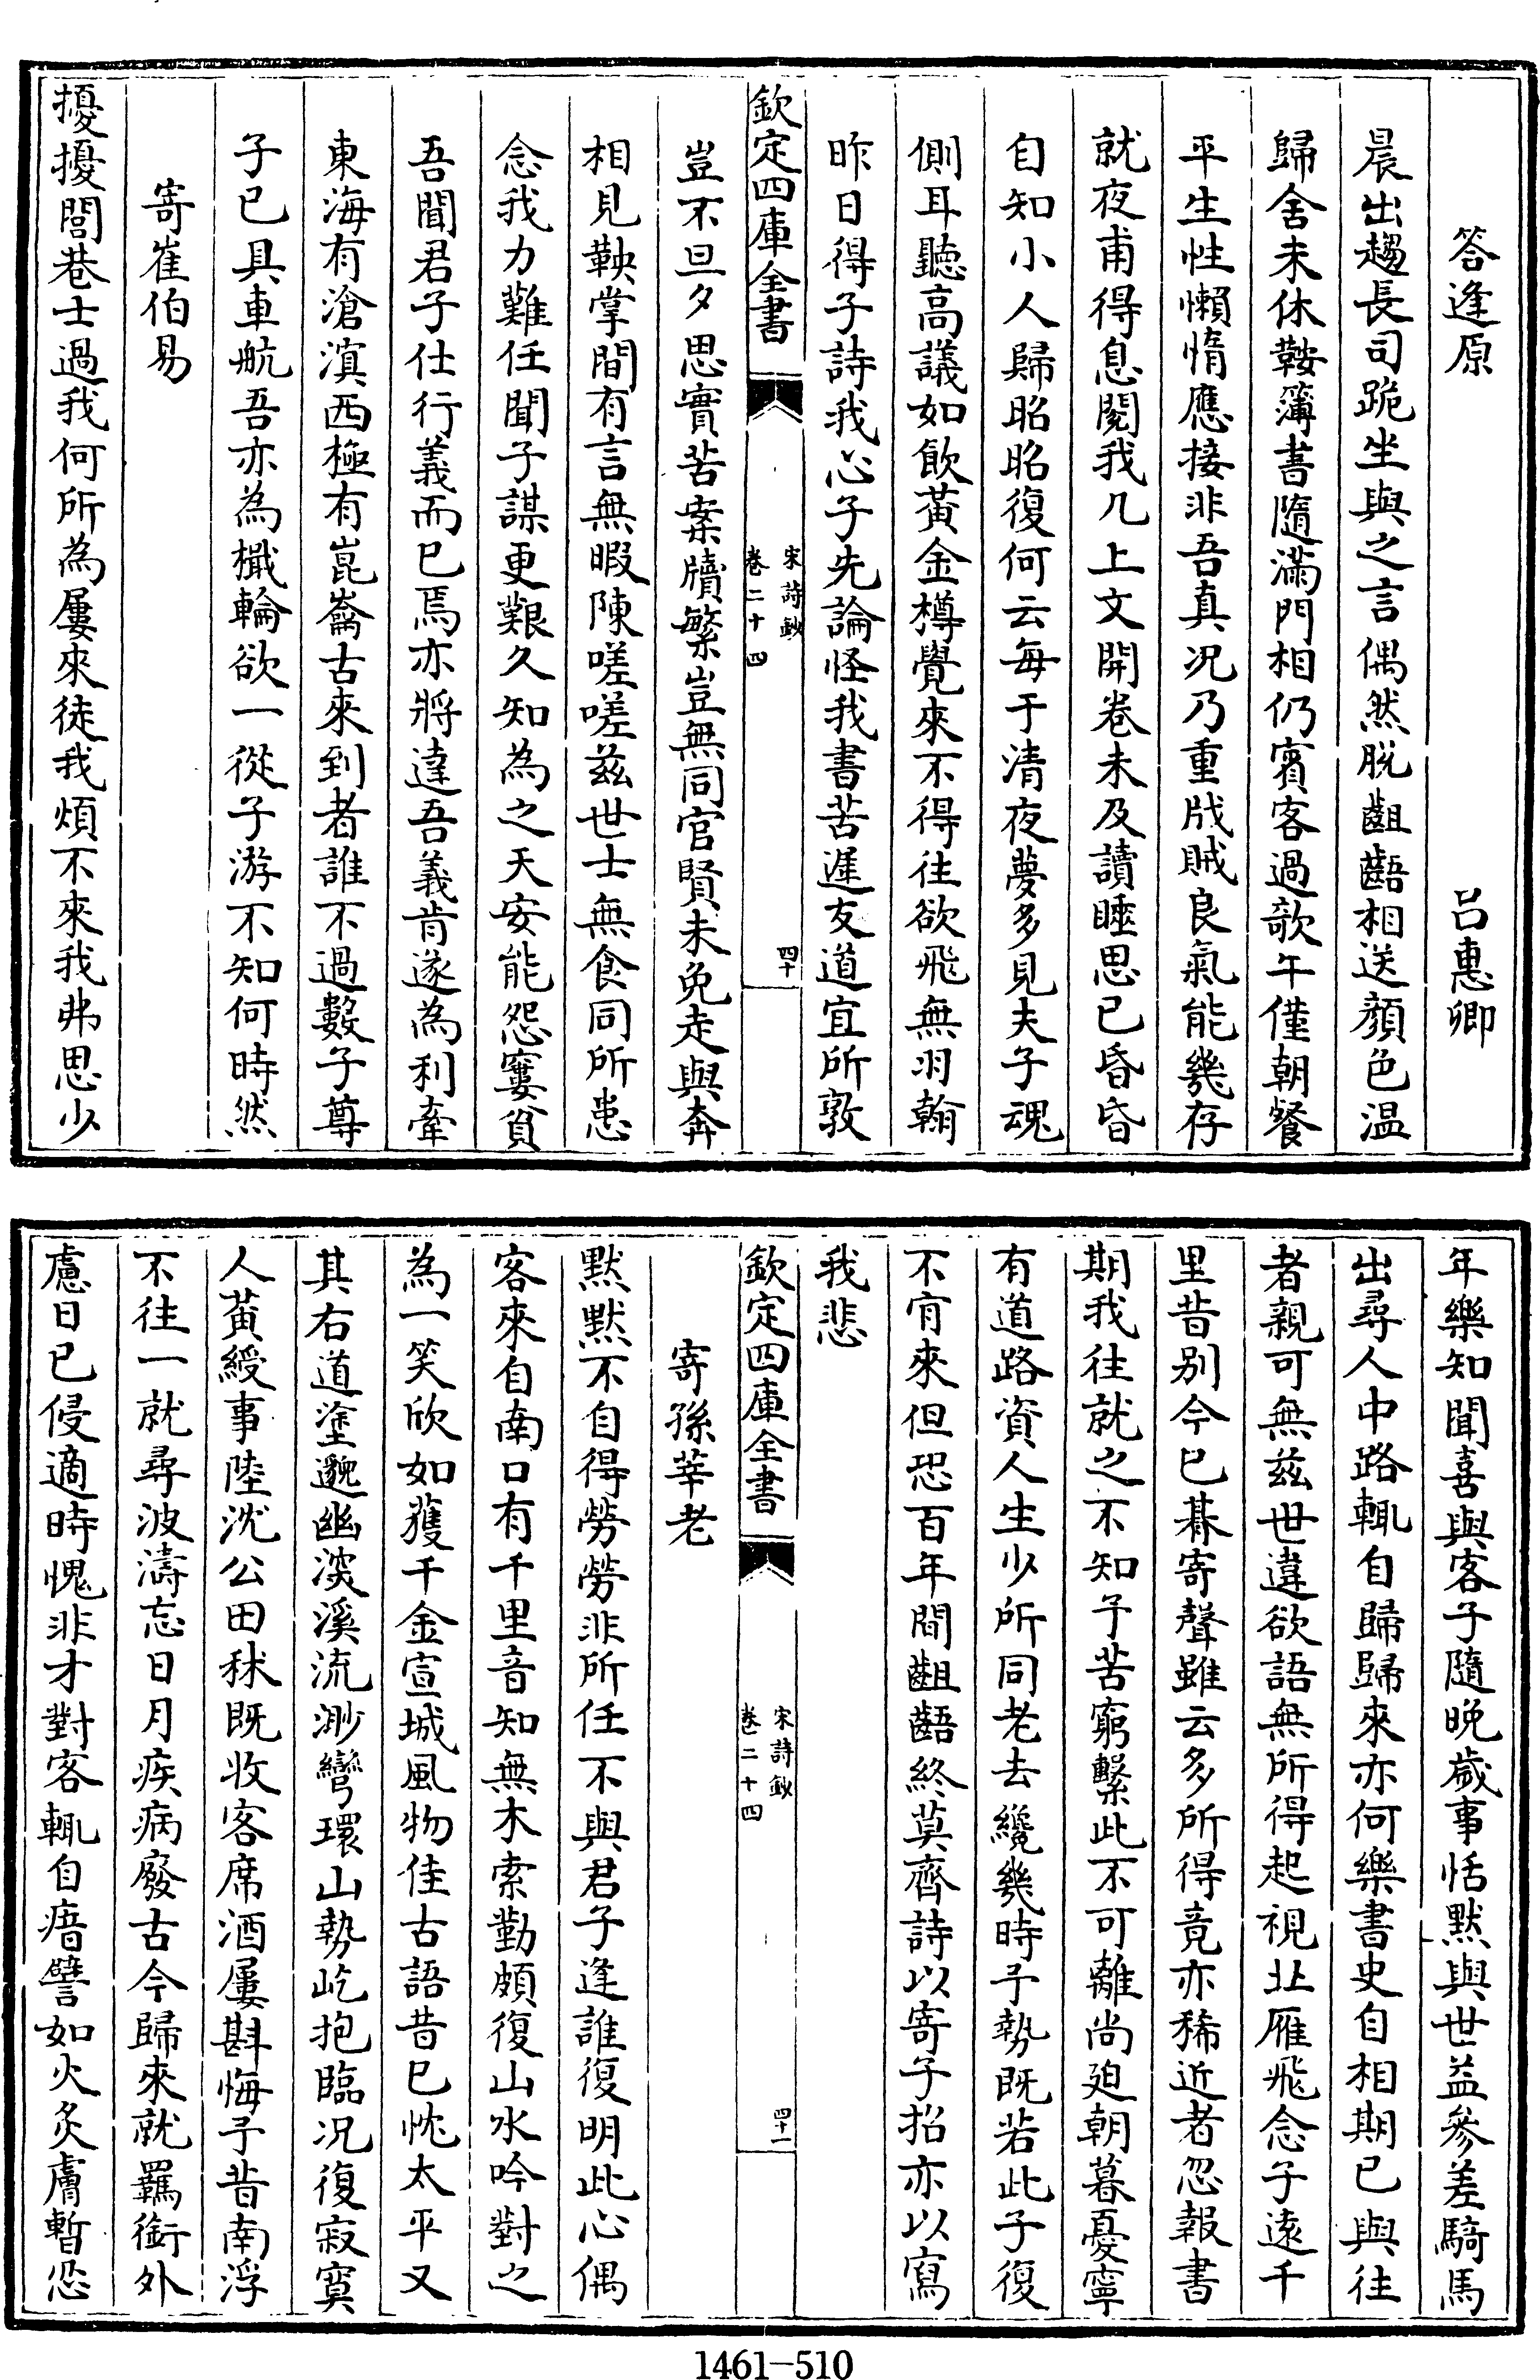 答逢原　吕惠卿
晨出趨長司跪坐與之言偶然脱齟齬相送顔色温
歸舍未休鞍簿書隨滿門相仍賓客過歌午僅朝餐
平生性懶惰應接非吾真况乃重戕賊良氣能幾存
就夜甫得息閱我几上文開卷未及讀睡思已昏昏
自知小人歸昭昭復何云每于清夜夢多見夫子魂
側耳聽高議如飲黃金樽覺來不得往欲飛無羽翰
昨日得子詩我心子先論怪我書苦遲友道宜所敦
欽定四庫全書　宋詩鈔 卷二十四　四十
豈不旦夕思實苦案牘繁豈無同官賢未免走與奔
相見鞅掌間有言無暇陳嗟嗟兹世士無食同所患
念我力難任聞子謀更艱久知為之天安能怨窶貧
吾聞君子仕行義而已焉亦將達吾義肯遂為利牽
東海有滄溟西極有崑崙古來到者誰不過數子尊
子已具車航吾亦為檝輪欲一從子游不知何時然
寄崔伯易
擾擾閭巷士過我何所為屢來徒我煩不來我弗思少
年樂知聞喜與客子隨晚嵗事恬默與世益參差騎馬
出尋人中路輒自歸歸來亦何樂書史自相期已與往
者親可無兹世違欲語無所得起視北雁飛念子遠千
里昔别今已朞寄聲雖云多所得竟亦稀近者忽報書
期我往就之不知予苦窮繫此不可離尚廹朝暮憂寧
有道路資人生少所同老去纔幾時予勢既若此子復
不肯來但恐百年間齟齬終莫齊詩以寄子招亦以寫
我悲
欽定四庫全書　宋詩鈔 卷二十四　四十一
寄孫莘老
默默不自得勞勞非所任不與君子逢誰復明此心偶
客來自南口有千里音知無木索勤頗復山水吟對之
為一笑欣如獲千金宣城風物佳古語昔已忱太平又
其右道塗邈幽深溪流渺彎環山勢屹抱臨况復寂寞
人黃綬事陸沈公田秫既收客席酒屢斟悔予昔南浮
不往一就尋波濤忘日月疾病廢古今歸來就羈銜外
慮日已侵適時愧非才對客輒自瘖譬如火炙膚暫忍
1461-510